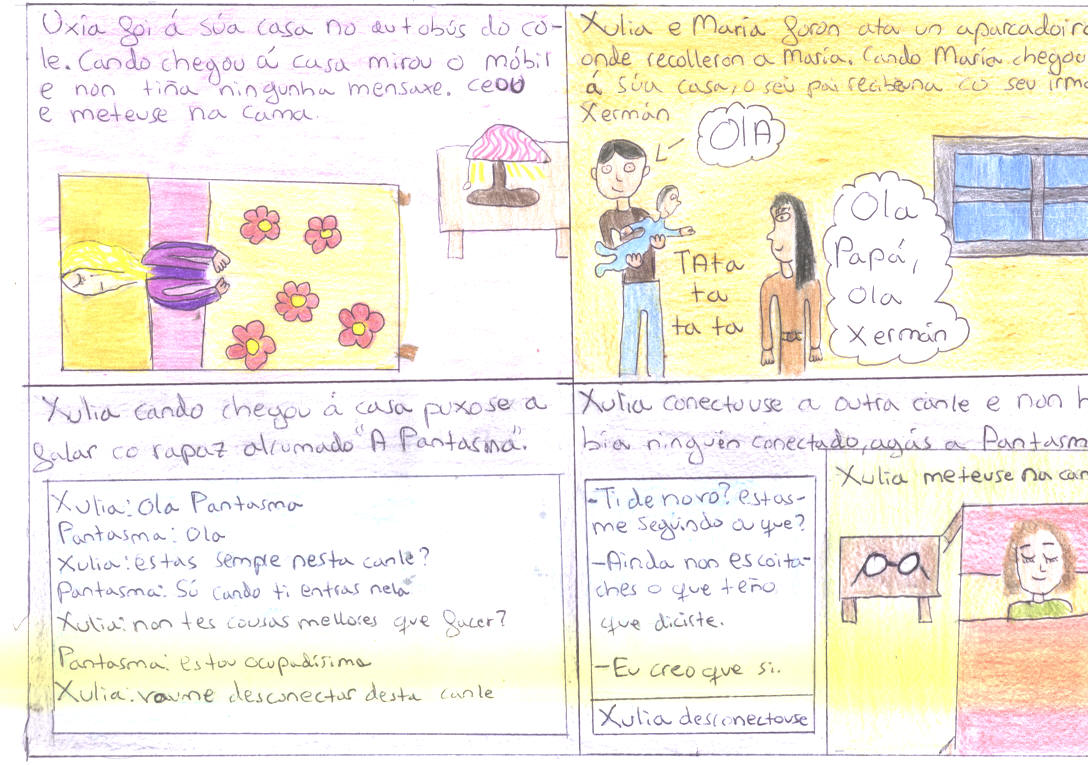 Uxía foi á súa casa no autobús do co-
le. Cando chegou á casa mirou o móbil
e non tiña ningunha mensaxe. ceou
e meteuse na cama.
Xulia e María foron ata un aparcadoiro
onde recolleron a María. Cando María chegou
á súa casa, o seu pai recibeuna co seu irma
Xermán
OlA
TAta
ta
ta ta
Ola
Papá,
Ola
Xermán
Xulia cando chegou á casa puxose a
falar co rapaz alcumado "A Pantasma".
Xulia: Ola Pantasma
Pantasma: Ola
Xulia: estas sempre nesta canle?
Pantasma: Só cando ti entras nela
Xulia: non tes cousas mellores que facer?
Pantasma: estou ocupadísimo
Xulia: voume desconectar desta canle
Xulia conectouse a outra canle e non h
bía ninguén conectado, agás a Pantasm
-Ti de novo? estas-
me seguindo ou que?
-Ainda non escoita-
ches o que teño
que dicirte.
-Eu creo que si.
Xulia desconectouse
Xulia meteuse na cam